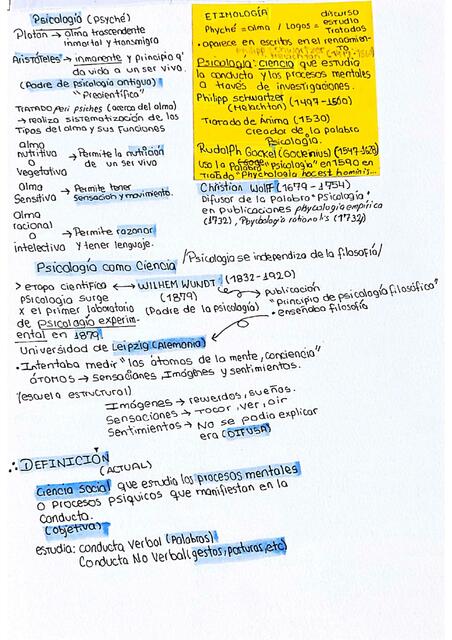 Psicología (PSYché)
Platón → alma trascendente
inmortal y transmigra
Aristóteles → inmanente y principio q'
da vida a un ser vivo.
(Padre de Psicología antigua)
"Precientífica"
TRATADO peri psiches (acerca del alma)
→ realiza sistematización de los
Tipos del alma y sus funciones
alma
nutritiva → Permite la nutrición
o de un ser vivo
vegetativa
alma → Permite tener
Sensitiva sensación y movimiento.
Alma
racional
o → Permite razonar
intelectiva y tener lenguaje.
ETIMOLOGÍA
Phyché = alma / Logos = discurso
estudio
Tratados
• aparece en escritos en el renacimien-
to
Psicología: ciencia que estudia
la conducta y los procesos mentales
a través de investigaciones.
Philipp schwartzer (1497-1560)
(Melachton)
Tratado de Ánima (1530)
creador de la palabra
Psicología.
Rudolph Gockel (Gocleinius) (1547-1628)
Uso la Palabra "Psicología" en 1590 en
tratado "Phychología hoc est hominis...
Christian Wolff (1679-1754)
Difusor de la Palabra "Psicología"
en publicaciones phycología empírica
(1732), Psychología rationalis (1732)
Psicología como Ciencia / Psicología se independiza de la filosofía /
> etapa científica ↔ WILHEM WUNDT (1832-1920)
Psicología surge (1879) → publicación
x el primer laboratorio (Padre de la psicología) "Principio de psicología filosófica"
de psicología experim- • enseñaba filosofía
ental en 1879
Universidad de Leipzig (Alemania)
• Intentaba medir "los átomos de la mente, conciencia"
átomos → sensaciones, Imágenes y sentimientos.
(escuela estructural)
Imágenes → recuerdos, sueños.
Sensaciones → Tocar, ver, oir
Sentimientos → No se podía explicar
era (DIFUSA)
∴ DEFINICIÓN
(ACTUAL)
Ciencia social que estudia los procesos mentales
o procesos psíquicos que manifiestan en la
conducta.
(objetiva)
estudia: conducta verbal (Palabras)
Conducta No Verbal (gestos, posturas, etc)